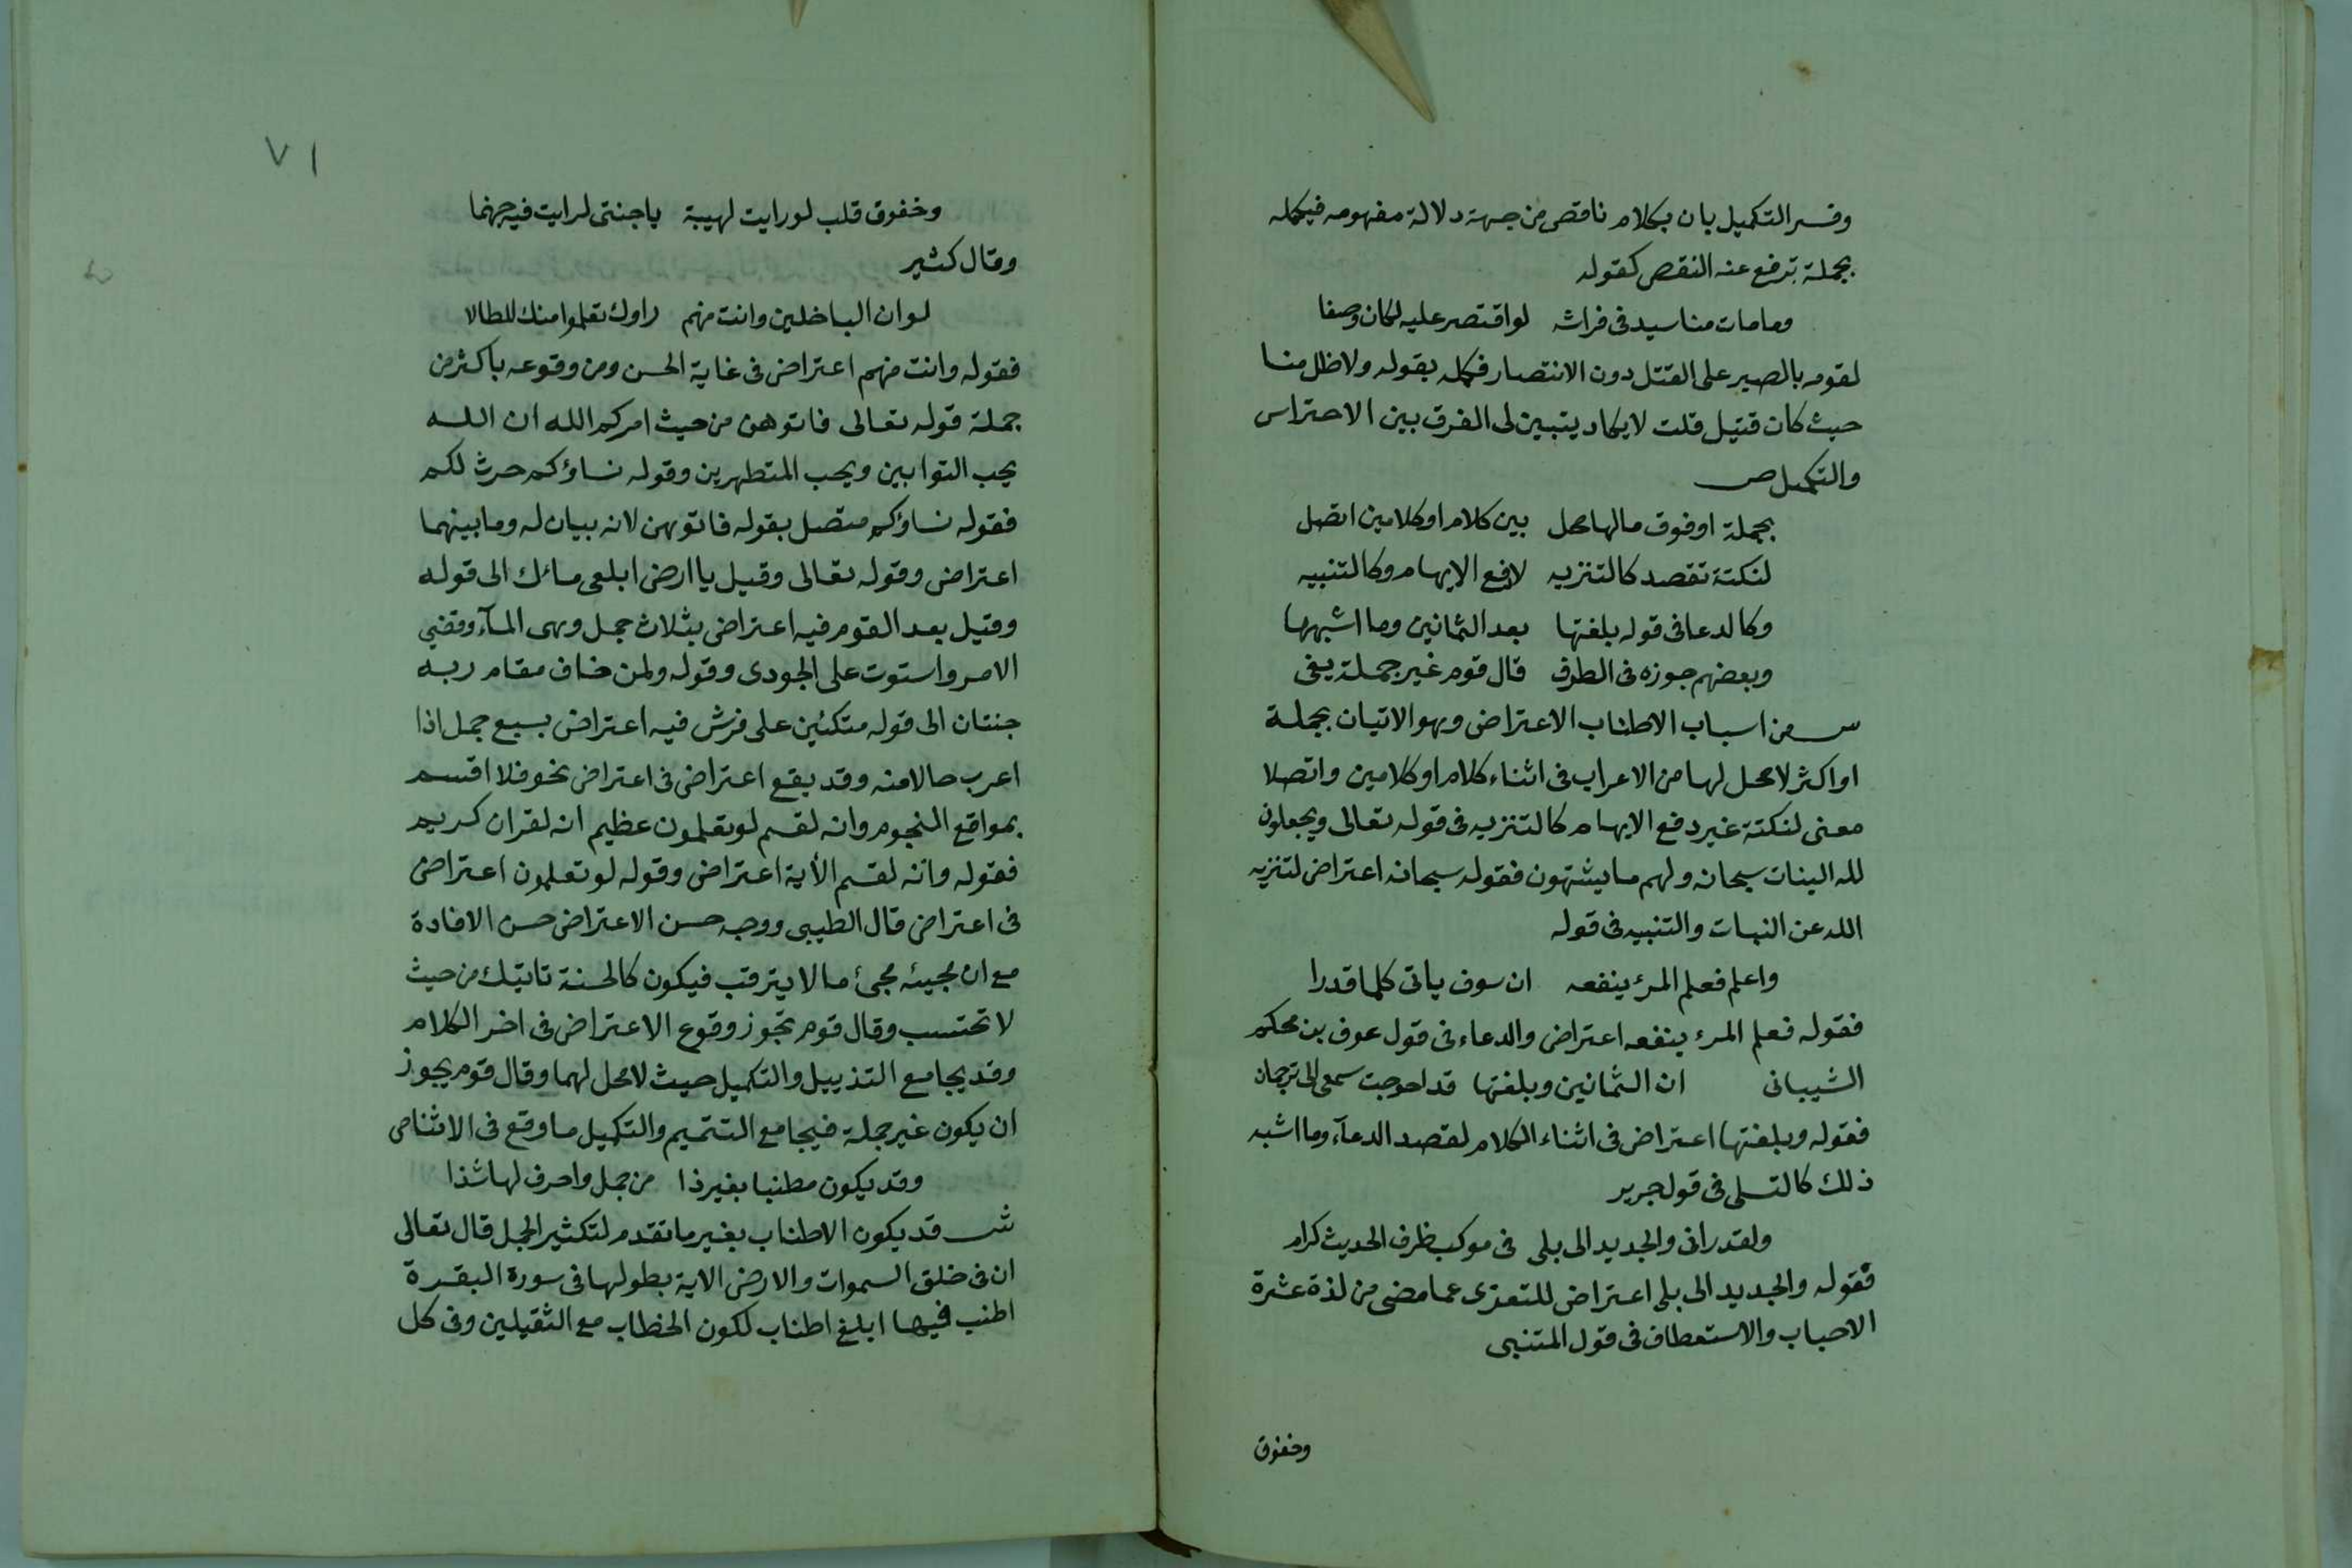 وفسر التكميل بان بكلام ناقص من جهة دلالة مفهومه فيكمله
بجملة ترفع عنه النقص كقوله
وما مات منا سيد في فراشه لو اقتصر عليه لكان وصفا
لقومه بالصبر على القتل دون الانتصار فكمله بقوله ولا ظل منا
حيث كان قتيل قلت لا يكاد يتبين لى الفرق بين الاحتراس
والتكميل ص
بجملة او فوق ما لها محل بين كلام او كلامين اتصل
لنكتة تقصد كالتنزيه لا رفع الايهام وكالتنبيه
وكالدعا فى قوله بلغتها بعد الثمانين وما اشبهها
وبعضهم جوزه فى الطرف قال قوم غير جملة يفى
ش من اسباب الاطناب الاعتراض وهو الاتيان بجملة
او اكثر لا محل لها من الاعراب فى اثناء كلام او كلامين واتصلا
معنى لنكتة غير دفع الايهام كالتنزيه فى قوله تعالى ويجعلون
لله البنات سبحانه ولهم ما يشتهون فقوله سبحانه اعتراض لتنزيه
الله عن النبات والتنبيه فى قوله
واعلم فعلم المرء ينفعه ان سوف ياتى كلما قدرا
فقوله فعلم المرء ينفعه اعتراض والدعاء فى قول عوف بن محكم
الشيبانى ان الثمانين وبلغتها قد احوجت سمعى الى ترجمان
فقوله وبلغتها اعتراض فى اثناء الكلام لقصد الدعآء وما اشبه
ذلك كالتسلى فى قول جرير
ولقد رانى والجديد الى بلى فى موكب ظرف الحديث كرام
فقوله والجديد الى بلى اعتراض للتعزى عما مضى من لذة عشرة
الاحباب والاستعطاف فى قول المتنبى
وخفوق
٧١
وخفوق قلب لو رايت لهيبة يا جنتى لرايت فيه جهنما
وقال كثير
لو ان الباخلين وانت منهم راوك تعلموا منك المطالا
فقوله وانت منهم اعتراض فى غاية الحسن ومن وقوعه باكثر من
جملة قوله تعالى فاتوهن من حيث امركم الله ان الله
يحب التوابين ويحب المتطهرين وقوله نساؤكم حرث لكم
فقوله نساؤكم متصل بقوله فاتوهن لانه بيان له وما بينهما
اعتراض وقوله تعالى وقيل يا ارض ابلعى مائك الى قوله
وقيل بعد القوم فيه اعتراض بثلاث جمل وهى المآء وقضي
الامر واستوت على الجودى وقوله ولمن خاف مقام ربه
جنتان الى قوله متكئين على فرش فيه اعتراض بسبع جمل اذا
اعرب حالا منه وقد يقع اعتراض فى اعتراض نحو فلا اقسم
بمواقع النجوم وانه لقسم لو تعلمون عظيم انه لقران كريم
فقوله وانه لقسم الأية اعتراض وقوله لو تعلمون اعتراض
فى اعتراض قال الطيبى ووجه حسن الاعتراض حسن الافادة
مع ان مجيئه مجئ ما لا يترقب فيكون كالحسنة تاتيك من حيث
لا تحتسب وقال قوم تجوز وقوع الاعتراض فى اخر الكلام
وقد يجامع التذييل والتكميل حيث لا محل لهما وقال قوم يجوز
ان يكون غير جملة فيجامع التتميم والتكميل ما وقع فى الاثنا ص
وقد يكون مطنبا بغير ذا من جمل واحرف لها شذا
ش قد يكون الاطناب بغير ما تقدم لتكثير الجمل قال تعالى
ان فى خلق السموات والارض الاية بطولها فى سورة البقرة
اطنب فيها ابلغ اطناب لكون الخطاب مع الثقيلين وفى كل